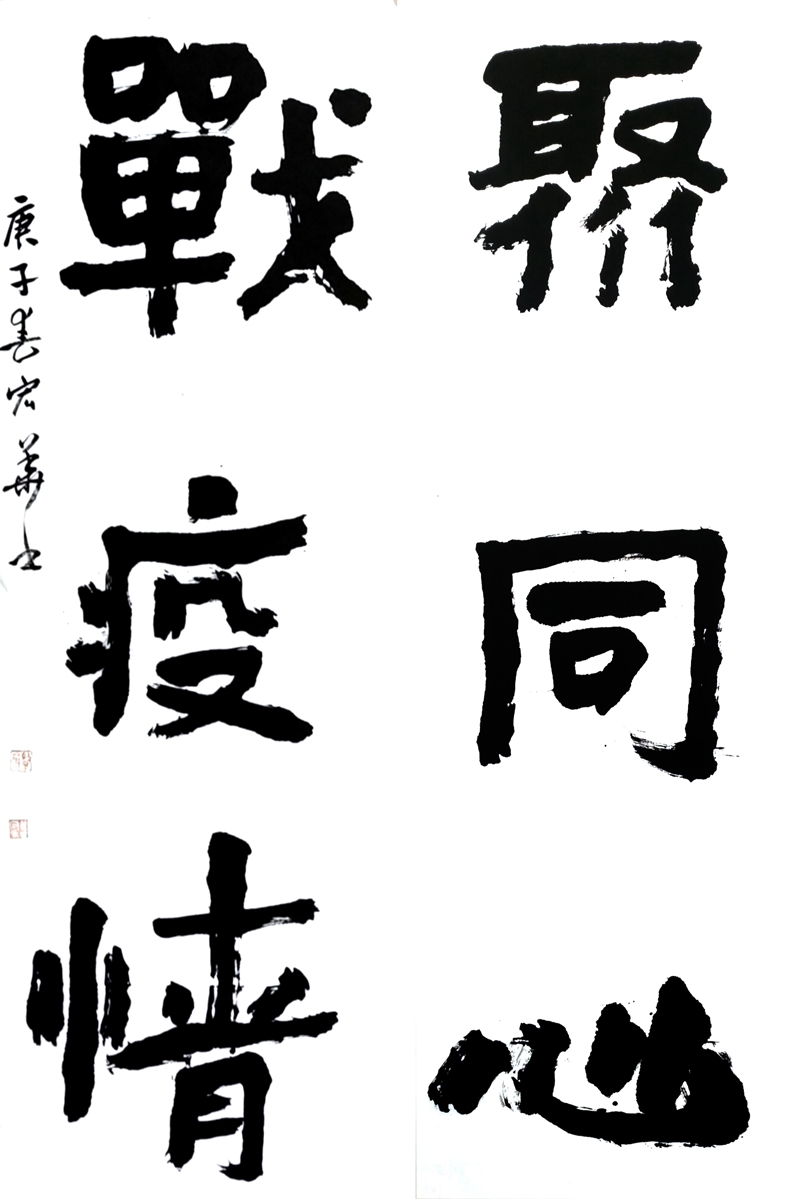 聚同心
戰疫情
庚子春宏華書